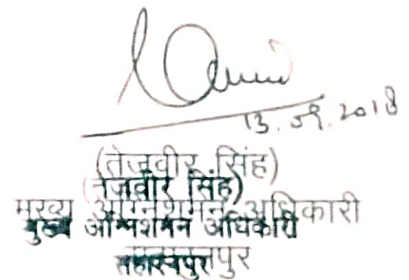 13.09.2018
(तेजवीर सिंह)
(तेजवीर सिंह)
मुख्य अग्निशमन अधिकारी
मुख्य अग्निशमन अधिकारी
सहारनपुर
सहारनपुर